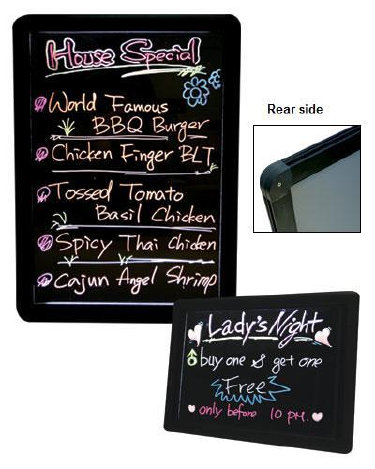 House Special
World Famous
BBQ Burger
Chicken Finger BLT
Tossed Tomato
Basil Chicken
Spicy Thai Chicken
Cajun Angel Shrimp
Rear side
Lady's Night
buy one & get one
Free
only before 10 P.M.